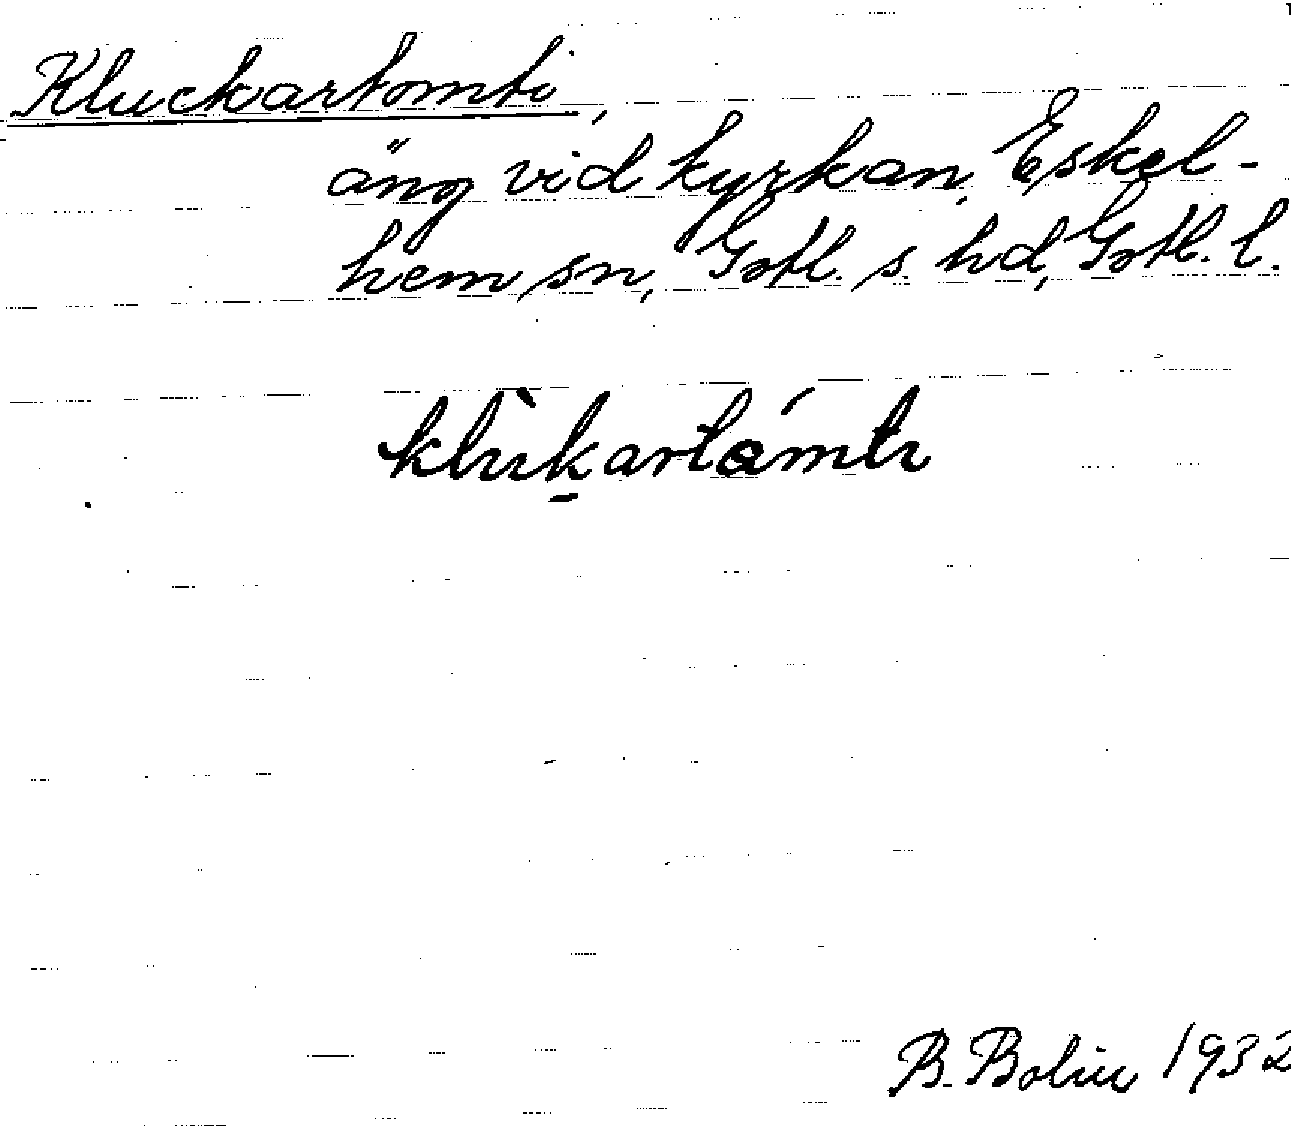 Kluckartomti,
äng vid kyrkan, Eskel-
hem sn, Gotl. s. hd, Gotl. l.
klùk̠artåmtı
B. Bolin 1932